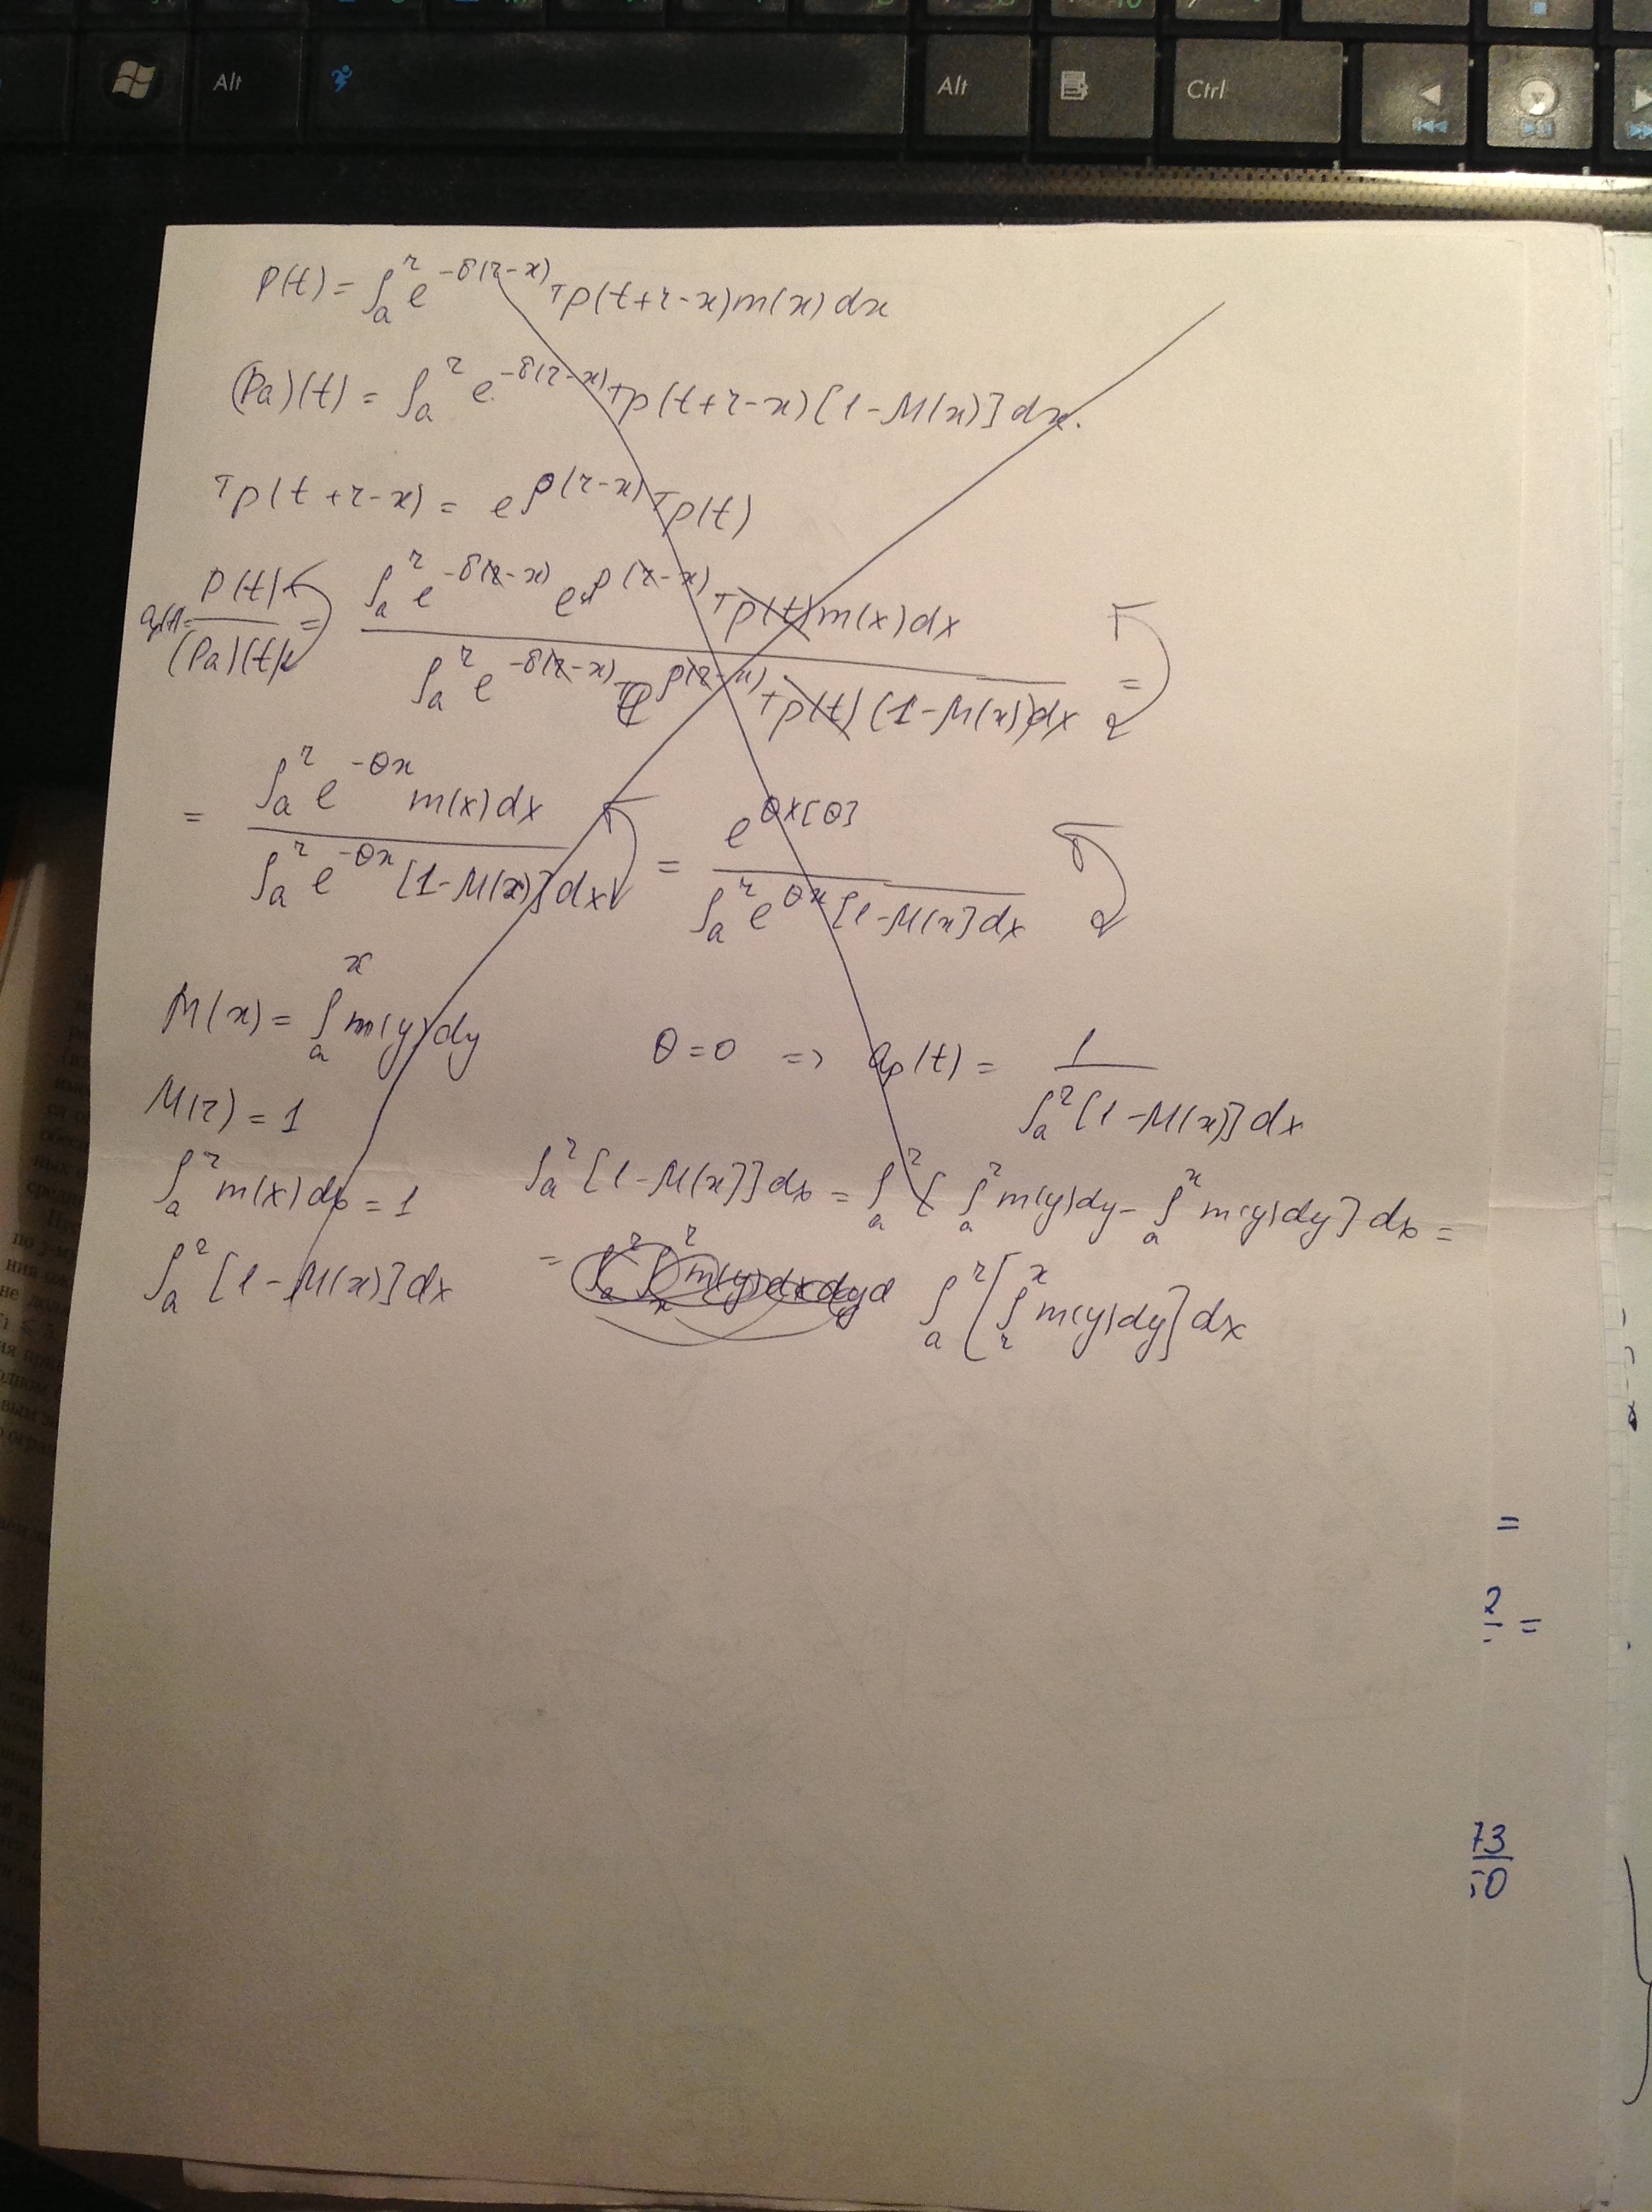 Alt Alt Ctrl
P(t) = ∫_a^r e^{-δ(r-x)} Tp(t+r-x) m(x) dx
(Pa)(t) = ∫_a^r e^{-δ(r-x)} Tp(t+r-x) [1-M(x)] dx.
Tp(t+r-x) = e^{ρ(r-x)} Tp(t)
P(t) / (Pa)(t) = ∫_a^r e^{-δ(r-x)} e^{ρ(r-x)} Tp(t) m(x) dx / ∫_a^r e^{-δ(r-x)} e^{ρ(r-x)} Tp(t) (1-M(x)) dx =
= ∫_a^r e^{-θx} m(x) dx / ∫_a^r e^{-θx} [1-M(x)] dx = e^{θX[θ]} / ∫_a^r e^{θx} [1-M(x] dx
M(x) = ∫_a^x m(y) dy
θ = 0 => a_p(t) = 1 / ∫_a^r [1-M(x)] dx
M(r) = 1
∫_a^r m(x) dx = 1
∫_a^r [1-M(x)] dx = ∫_a^r [∫_a^r m(y) dy - ∫_a^x m(y) dy] dx =
∫_a^r [1-M(x)] dx
= ∫_a^r [∫_r^x m(y) dy] dx
=
2 / =
73